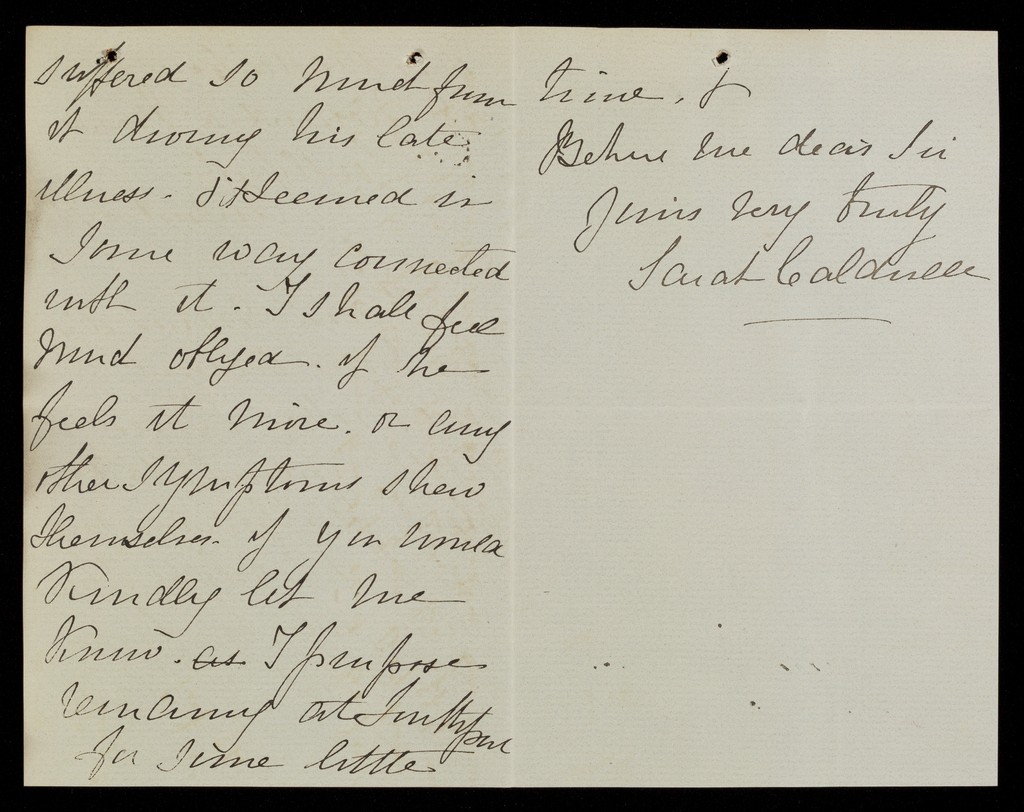 suffered so much from
it during his late
illness. It seemed in
some way connected
with it. I shall feel
much obliged. if he
feels it more. or any
other symptoms shew
themselves. if you would
kindly let me
know. as I purpose
remaining at Southport
for some little
time. &
Believe me dear Sir
Yours very truly
Sarah Caldwell